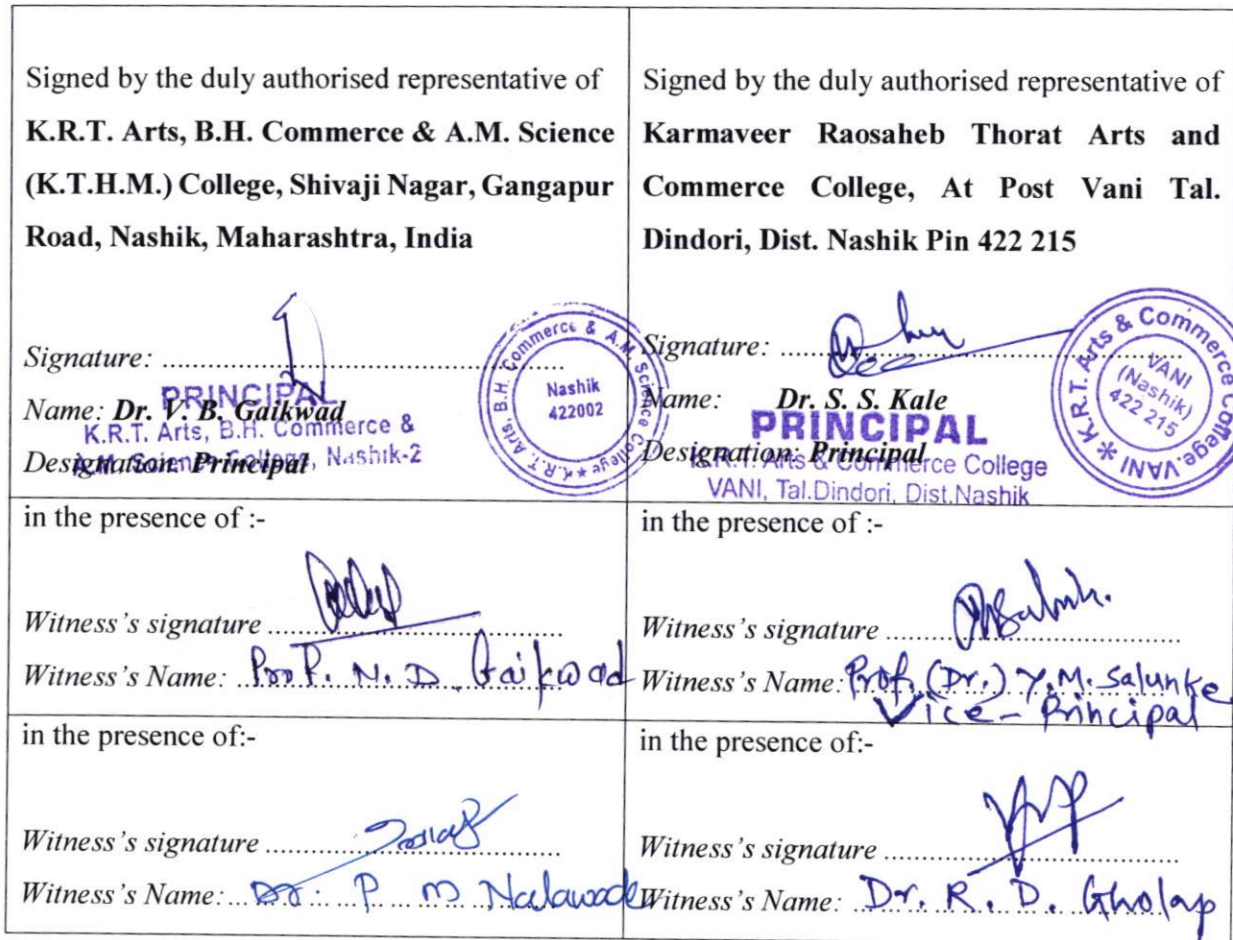 Signed by the duly authorised representative of
K.R.T. Arts, B.H. Commerce & A.M. Science
(K.T.H.M.) College, Shivaji Nagar, Gangapur
Road, Nashik, Maharashtra, India
Signature:
PRINCIPAL
Name: Dr. V. B. Gaikwad
K.R.T. Arts, B.H. Commerce &
Designation: Principal
A.M. Science College, Nashik-2
K.R.T. Arts, B.H. Commerce & A.M. Science College
Nashik
422002
in the presence of :-
Witness's signature
Witness's Name: Prof. N. D. Gaikwad
in the presence of:-
Witness's signature
Witness's Name: Dr. P M Nalawade
Signed by the duly authorised representative of
Karmaveer Raosaheb Thorat Arts and
Commerce College, At Post Vani Tal.
Dindori, Dist. Nashik Pin 422 215
Signature:
Name: Dr. S. S. Kale
PRINCIPAL
Designation: Principal
K.R.T. Arts & Commerce College
VANI, Tal.Dindori, Dist.Nashik
K.R.T. Arts & Commerce College, VANI
VANI
(Nashik)
422 215
in the presence of :-
Witness's signature
Witness's Name: Prof. (Dr.) Y.M. Salunke
Vice-Principal
in the presence of:-
Witness's signature
Witness's Name: Dr. R. D. Gholap